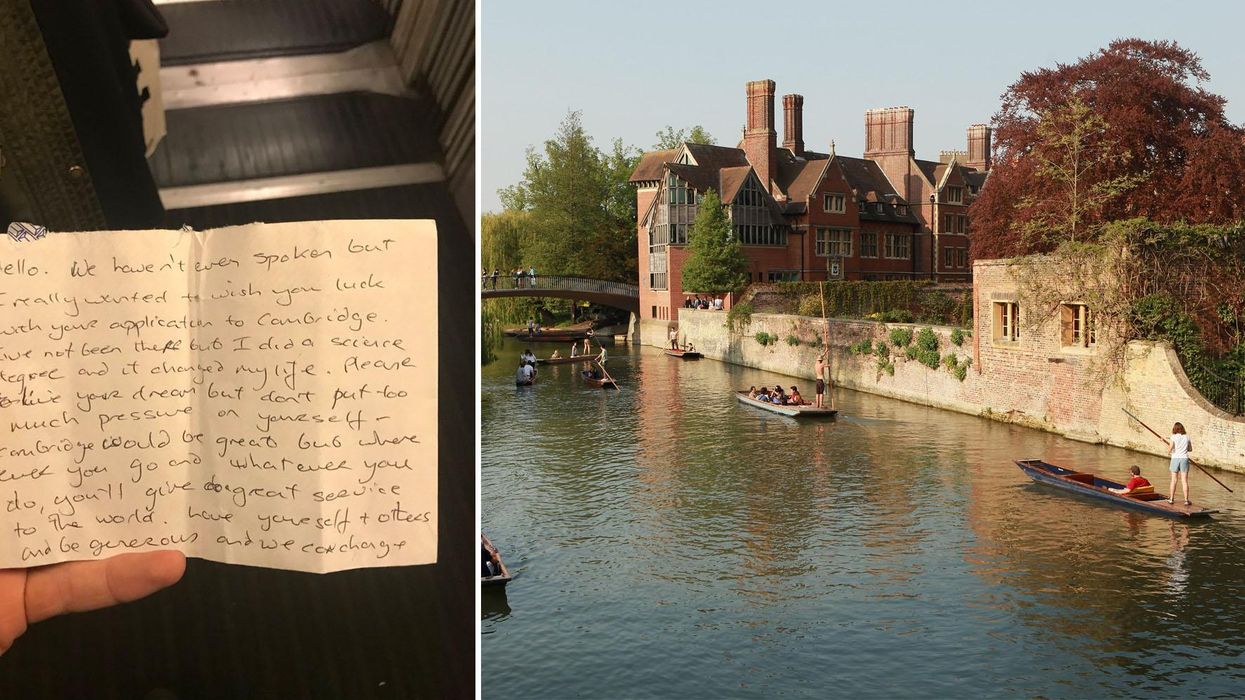 Hello. We haven't even spoken but
I really wanted to wish you luck
with your application to Cambridge.
I've not been there but I did a science
degree and it changed my life. Please
live your dream but don't put too
much pressure on yourself -
Cambridge would be great but where
ever you go and whatever you
do, you'll give great service
to the world. Love yourself + others
and be generous and we can change